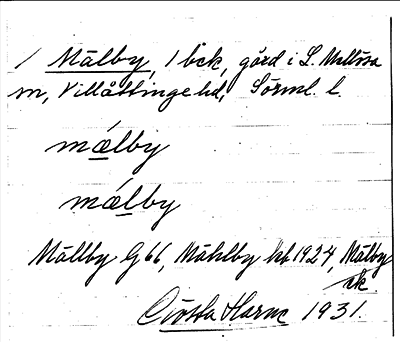 1 Mälby, 1 bck, gård i L. Mellösa
sn, Villåttinge hd, Sörml. l.
mælby
mælby
Mällby G 66, Mählby hb 1924, Mälby
ek.
Gösta Harne 1931.